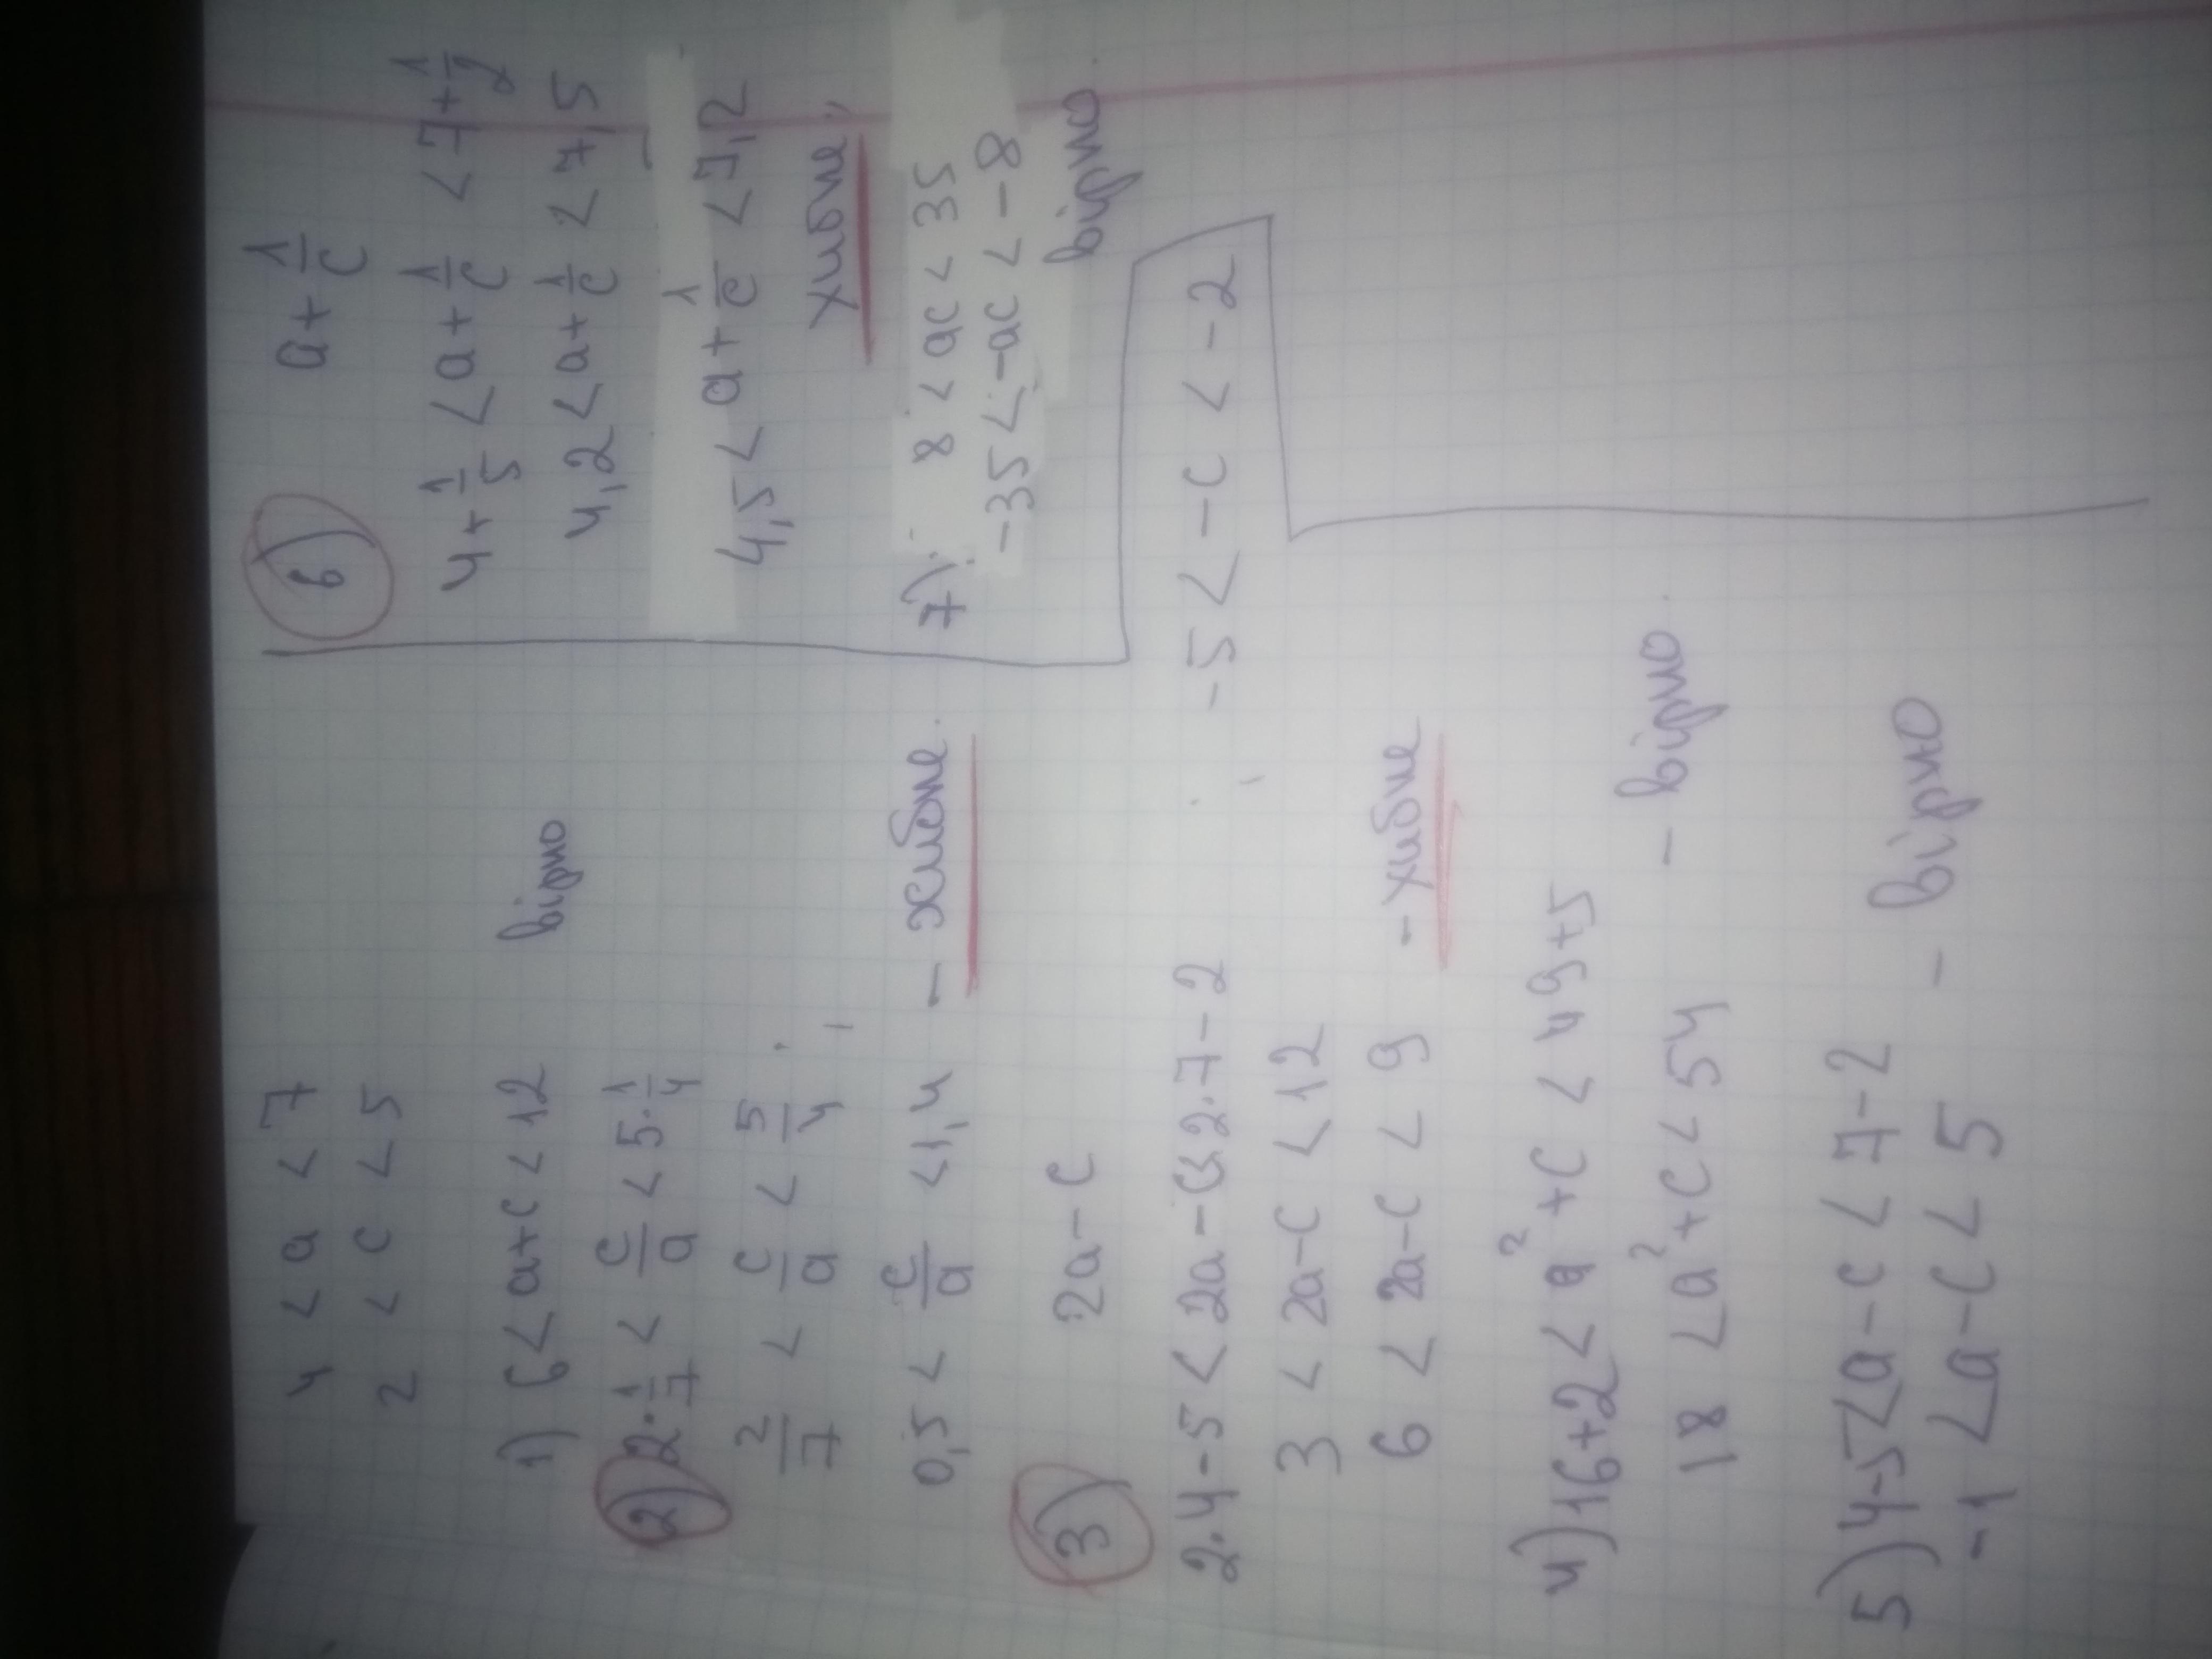 4 < a < 7
2 < c < 5
1) 6 < a+c < 12 вірно
2) 2·1/7 < c/a < 5·1/4
2/7 < c/a < 5/4
0,5 < c/a < 1,4 – хибне.
3) 2a-c
2·4-5 < 2a-c < 2·7-2
-5 < -c < -2
3 < 2a-c < 12
6 < 2a-c < 9 - хибне
4) 16+2 < a² + c < 49+5
18 < a² + c < 54 – вірно.
5) 4-5 < a-c < 7-2
-1 < a-c < 5 – вірно
6) a + 1/c
4 + 1/5 < a + 1/c < 7 + 1/2
4,2 < a + 1/c < 7,5
4,5 < a + 1/c < 7,2
хибне,
7) 8 < ac < 35
-35 < -ac < -8
вірно.